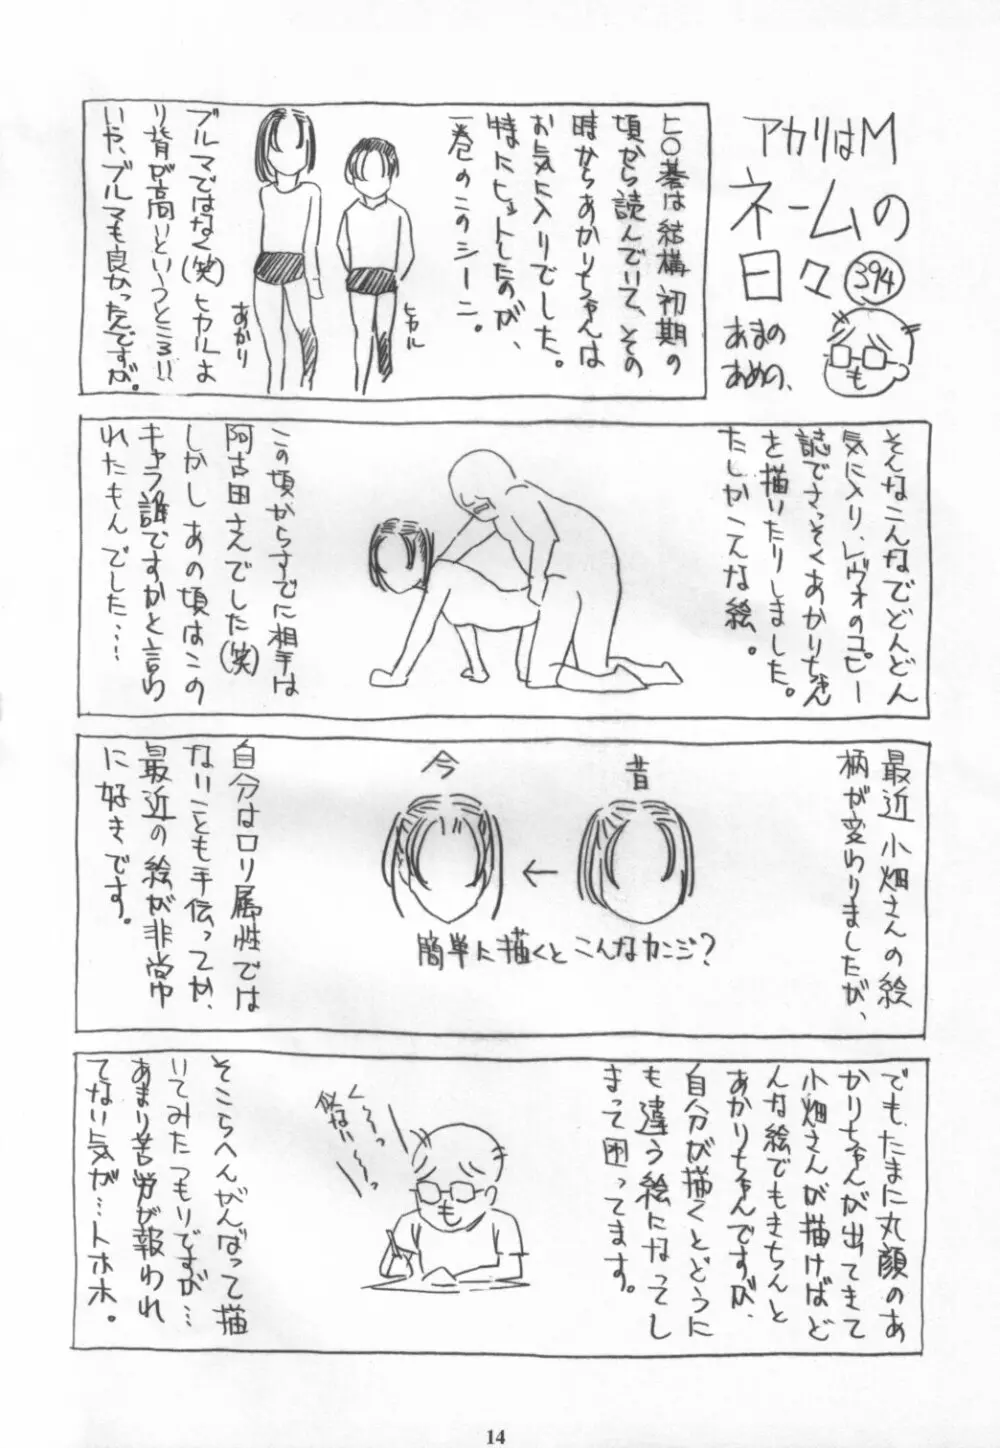 アカリはM
ネームの
日々 394
あまの
あめの、
ヒ〇碁は結構初期の
頃から読んでいて、その
時からあかりちゃんは
お気に入りでした。
特にヒットしたのが、
一巻のこのシーン。
ヒカル
あかり
ブルマではなく(笑)ヒカルよ
り背が高いというところ!!
いや、ブルマも良かったんですが。
そんなこんなでどんどん
気に入り、レヴォのコピー
誌でさっそくあかりちゃん
を描いたりしました。
たしかこんな絵。
この頃からすでに相手は
阿古田さんでした(笑)
しかしあの頃はこの
キャラ誰ですかと言わ
れたもんでした…
最近小畑さんの絵
柄が変わりましたが、
昔
←
今
簡単に描くとこんなカンジ?
自分はロリ属性では
ないことも手伝ってか、
最近の絵が非常
に好きです。
でも、たまに丸顔のあ
かりちゃんが出てきて
小畑さんが描けばど
んな絵でもきちんと
あかりちゃんですが、
自分が描くとどうに
も違う絵になってし
まって困ってます。
く〜〜っ
似ない〜っ
そこらへんがんばって描
いてみたつもりですが…
あまり苦労が報われ
てない気が…トホホ。
14